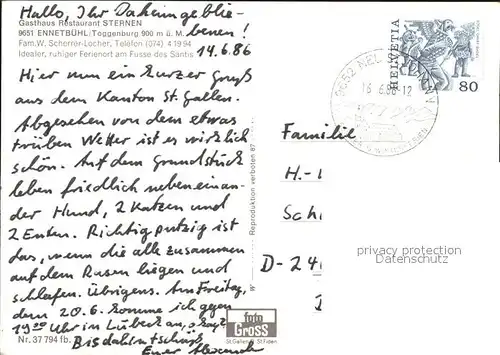 Hallo, Ihr Daheimgeblie-
benen!
Gasthaus Restaurant STERNEN
9651 ENNETBÜHL/Toggenburg 900 m ü. M.
Fam. W. Scherrer-Locher, Telefon (074) 4 19 94
Idealer, ruhiger Ferienort am Fusse des Säntis
14.6.86
Hier nun ein kurzer Gruß
aus dem Kanton St. Gallen.
Abgesehen von dem etwas
trüben Wetter ist es wirklich
schön. Auf dem Grundstück
leben friedlich nebeneinan-
der Hund, 2 Katzen und
2 Enten. Richtig putzig ist
das, wenn die alle zusammen
auf dem Rasen liegen und
schlafen. Übrigens. Am Freitag,
dem 20.6. komme ich gegen
19 Uhr in Lübeck an,
Bis dahin tschüß
Euer Alexander
Nr. 37 794 fb.
Reproduktion verboten 87
foto
Gross
St. Gallen St. Fiden
9652
16.6.86-12
HELVETIA
80
Familie
H.-
Sch
D-24
privacy protection
Datenschutz